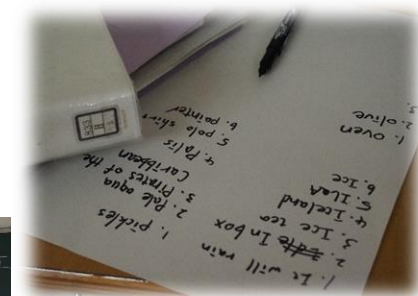 1. It will rain
2. In box
3. Ice tea
4. Iceland
5.
6. Ice
1. pickles
2. Pale aqua
3. Pirates of the
Caribbean
4. Palis
5. polo shirt
6. painter
1. oven
2. olive
3.